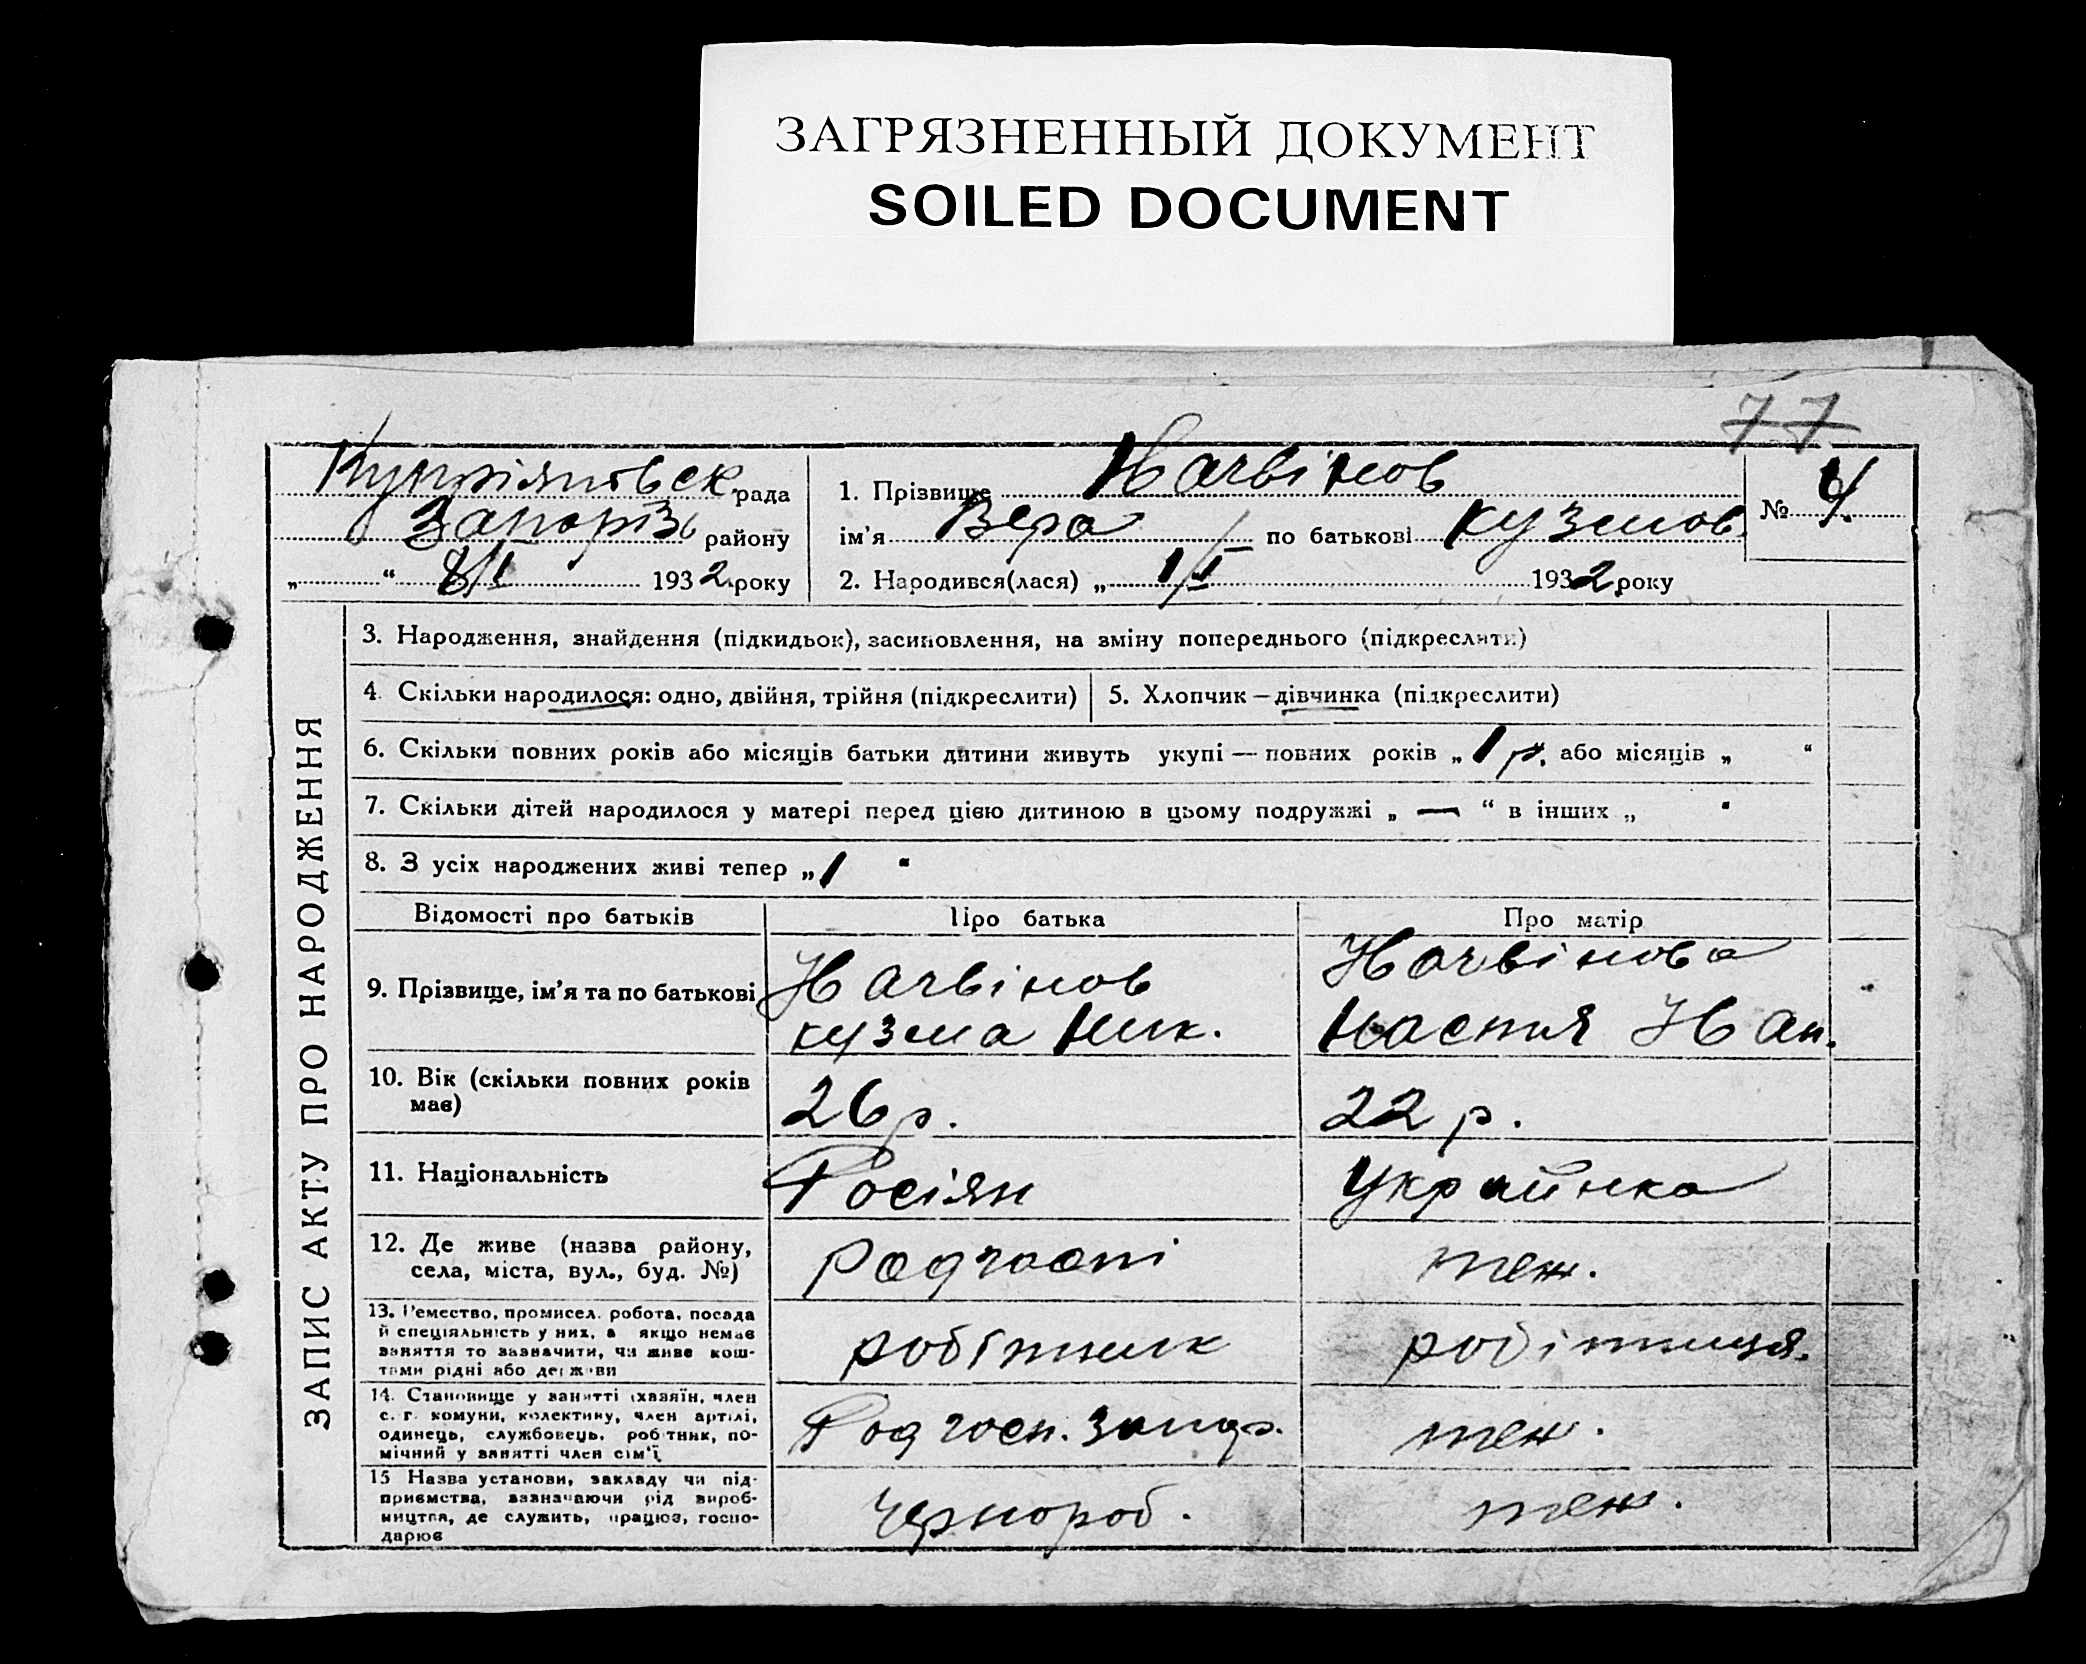 ЗАГРЯЗНЕННЫЙ ДОКУМЕНТ
SOILED DOCUMENT
77
Купріянівськ рада
Запорізь району
„ “ 8/I 1932 року
1. Прізвище Начвінов
ім'я Вера по батькові Кузмов.
2. Народився(лася) „ 1/I 1932 року
№ 4.
ЗАПИС АКТУ ПРО НАРОДЖЕННЯ
3. Народження, знайдення (підкидьок), засиновлення, на зміну попереднього (підкреслити)
4. Скільки народилося: одно, двійня, трійня (підкреслити)
5. Хлопчик — дівчинка (підкреслити)
6. Скільки повних років або місяців батьки дитини живуть укупі — повних років „ 1 р. або місяців „ “
7. Скільки дітей народилося у матері перед цією дитиною в цьому подружжі „ — “ в інших „ “
8. З усіх народжених живі тепер „ 1 “
Відомості про батьків
Про батька
Про матір
9. Прізвище, ім'я та по батькові
Начвінов
кузма Ник.
Начвінова
Настя Ив ан.
10. Вік (скільки повних років
має)
26 р.
22 р.
11. Національність
Росіян
Украйнка
12. Де живе (назва району,
села, міста, вул., буд. №)
Радгоспі
теж.
13. Ремество, промисел, робота, посада
й спеціяльність у них, а якщо немає
заняття то зазначити, чи живе кош-
тами рідні або держави
робітник
робітниця.
14. Становище у занятті (хазяїн, член
с. г. комуни, колективу, член артілі,
одинець, службовець, робітник, по-
мічний у занятті член сім'ї
Радгосп.
теж.
15 Назва установи, закладу чи під-
приємства, зазначаючи рід вироб-
ництва, де служить, працює, госпо-
дарює
чернороб.
теж.